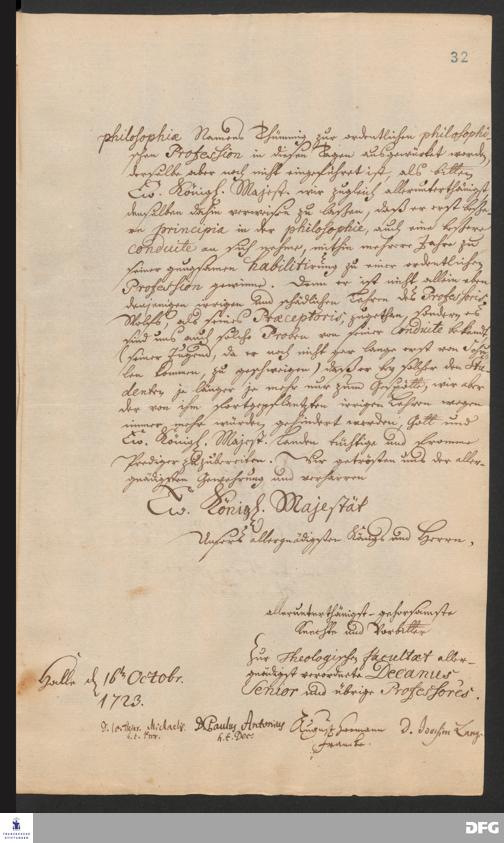 32
philosophiæ Namens Thümmig zur ordentlichen philosophi-
schen Profession in diesen Tagen ausgewürcket worden,
derselbe aber noch nicht eingeführet ist, als bitten
Ew. Königl. Majest. wir zugleich allerunterthänigst
denselben dahin verweisen zu lassen, daß er erst beße-
re principia in der philosophie, auch eine bessere
conduite an sich nehme, mithin mehrere Jahre zu
seiner gungsamen habilitirung zu einer ordentlichen
Profession gewinne. Denn er ist nicht allein eben
denjenigen irrigen und schädlichen Lehren des Professoris
Wolffs, als seines Præceptoris, zugethan, sondern es
sind uns auch solche Proben von seiner Conduite bekandt
(seiner Jugend, da er noch nicht gar lange erst von Schu-
len kommen, zu geschweigen) daß er bey solcher den Stu-
denten je länger je mehr nur zum Gespötte, wir aber
der von ihm fortgepflantzten irrigen Lehren wegen
immer mehr würden gehindert werden, Gott und
Ew. Königl. Majest. Landen tüchtige und fromme
Prediger zuzubereiten. Wir getrösten uns der aller-
gnädigsten Gewehrung und verharren
Ew. Königl. Majestät
Unsers allergnädigsten Königs und Herrn,
allerunterthänigst-gehorsamste
Knechte und Vorbitter
Zur Theologischen Facultæt aller-
gnädigst verordnete Decanus
Senior und übrige Professores.
Halle d. 16th Octobr.
1723.
D. Michaelis. D. Paulus Antonius August Herman D. Joachim Lange
h. t. Dec. Francke.
FRANCKESCHE
STIFTUNGEN
DFG